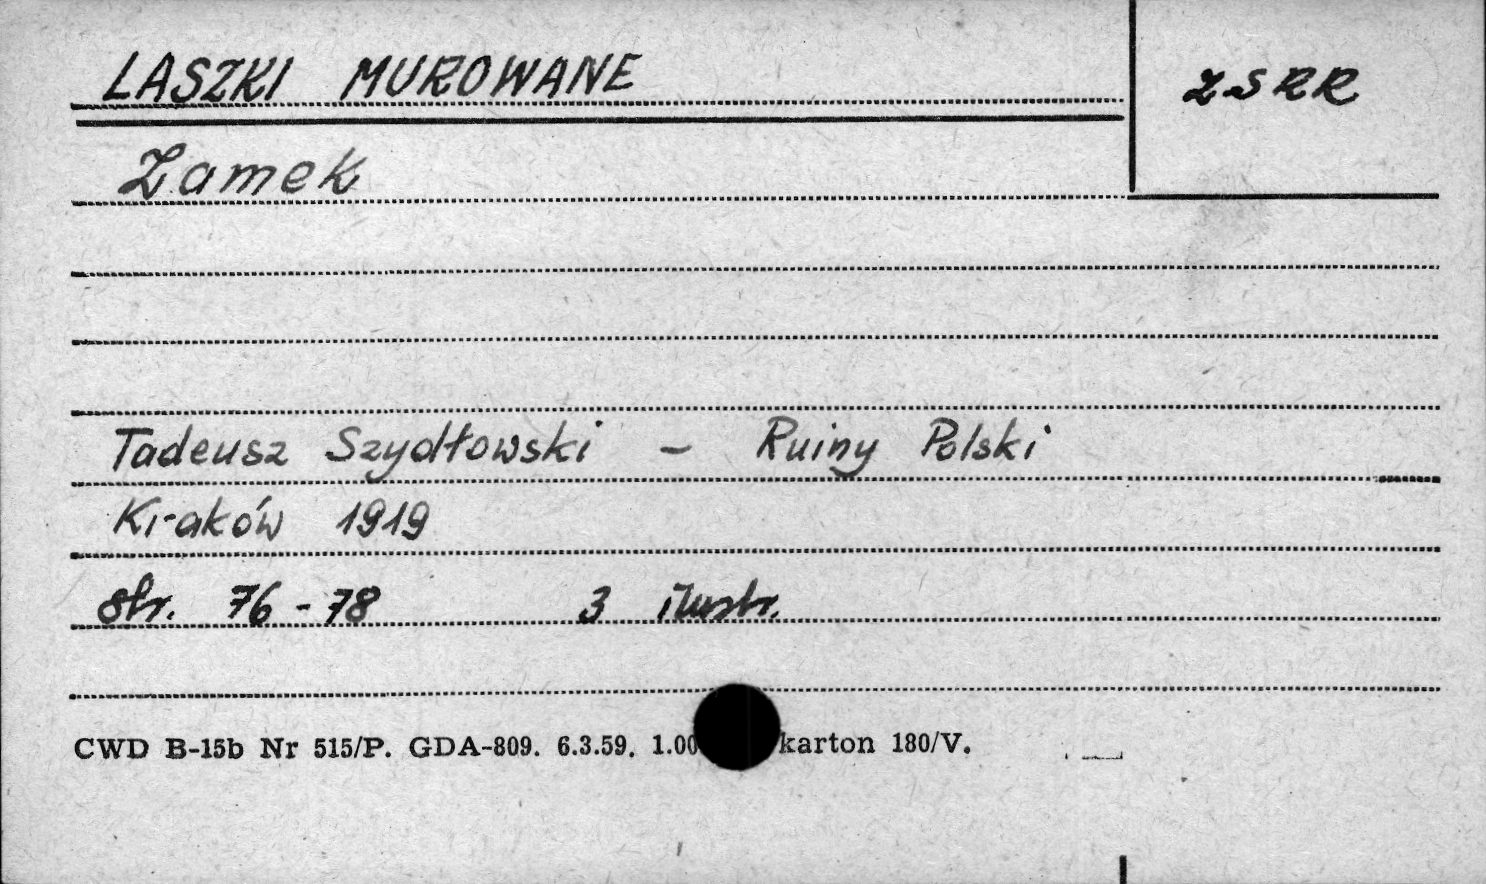 LASZKI MUROWANE
ZSRR
Zamek
Tadeusz Szydłowski – Ruiny Polski
Kraków 1919
str. 76-78 3 ilustr.
CWD B-15b Nr 515/P. GDA-809. 6.3.59. 1.00 karton 180/V.